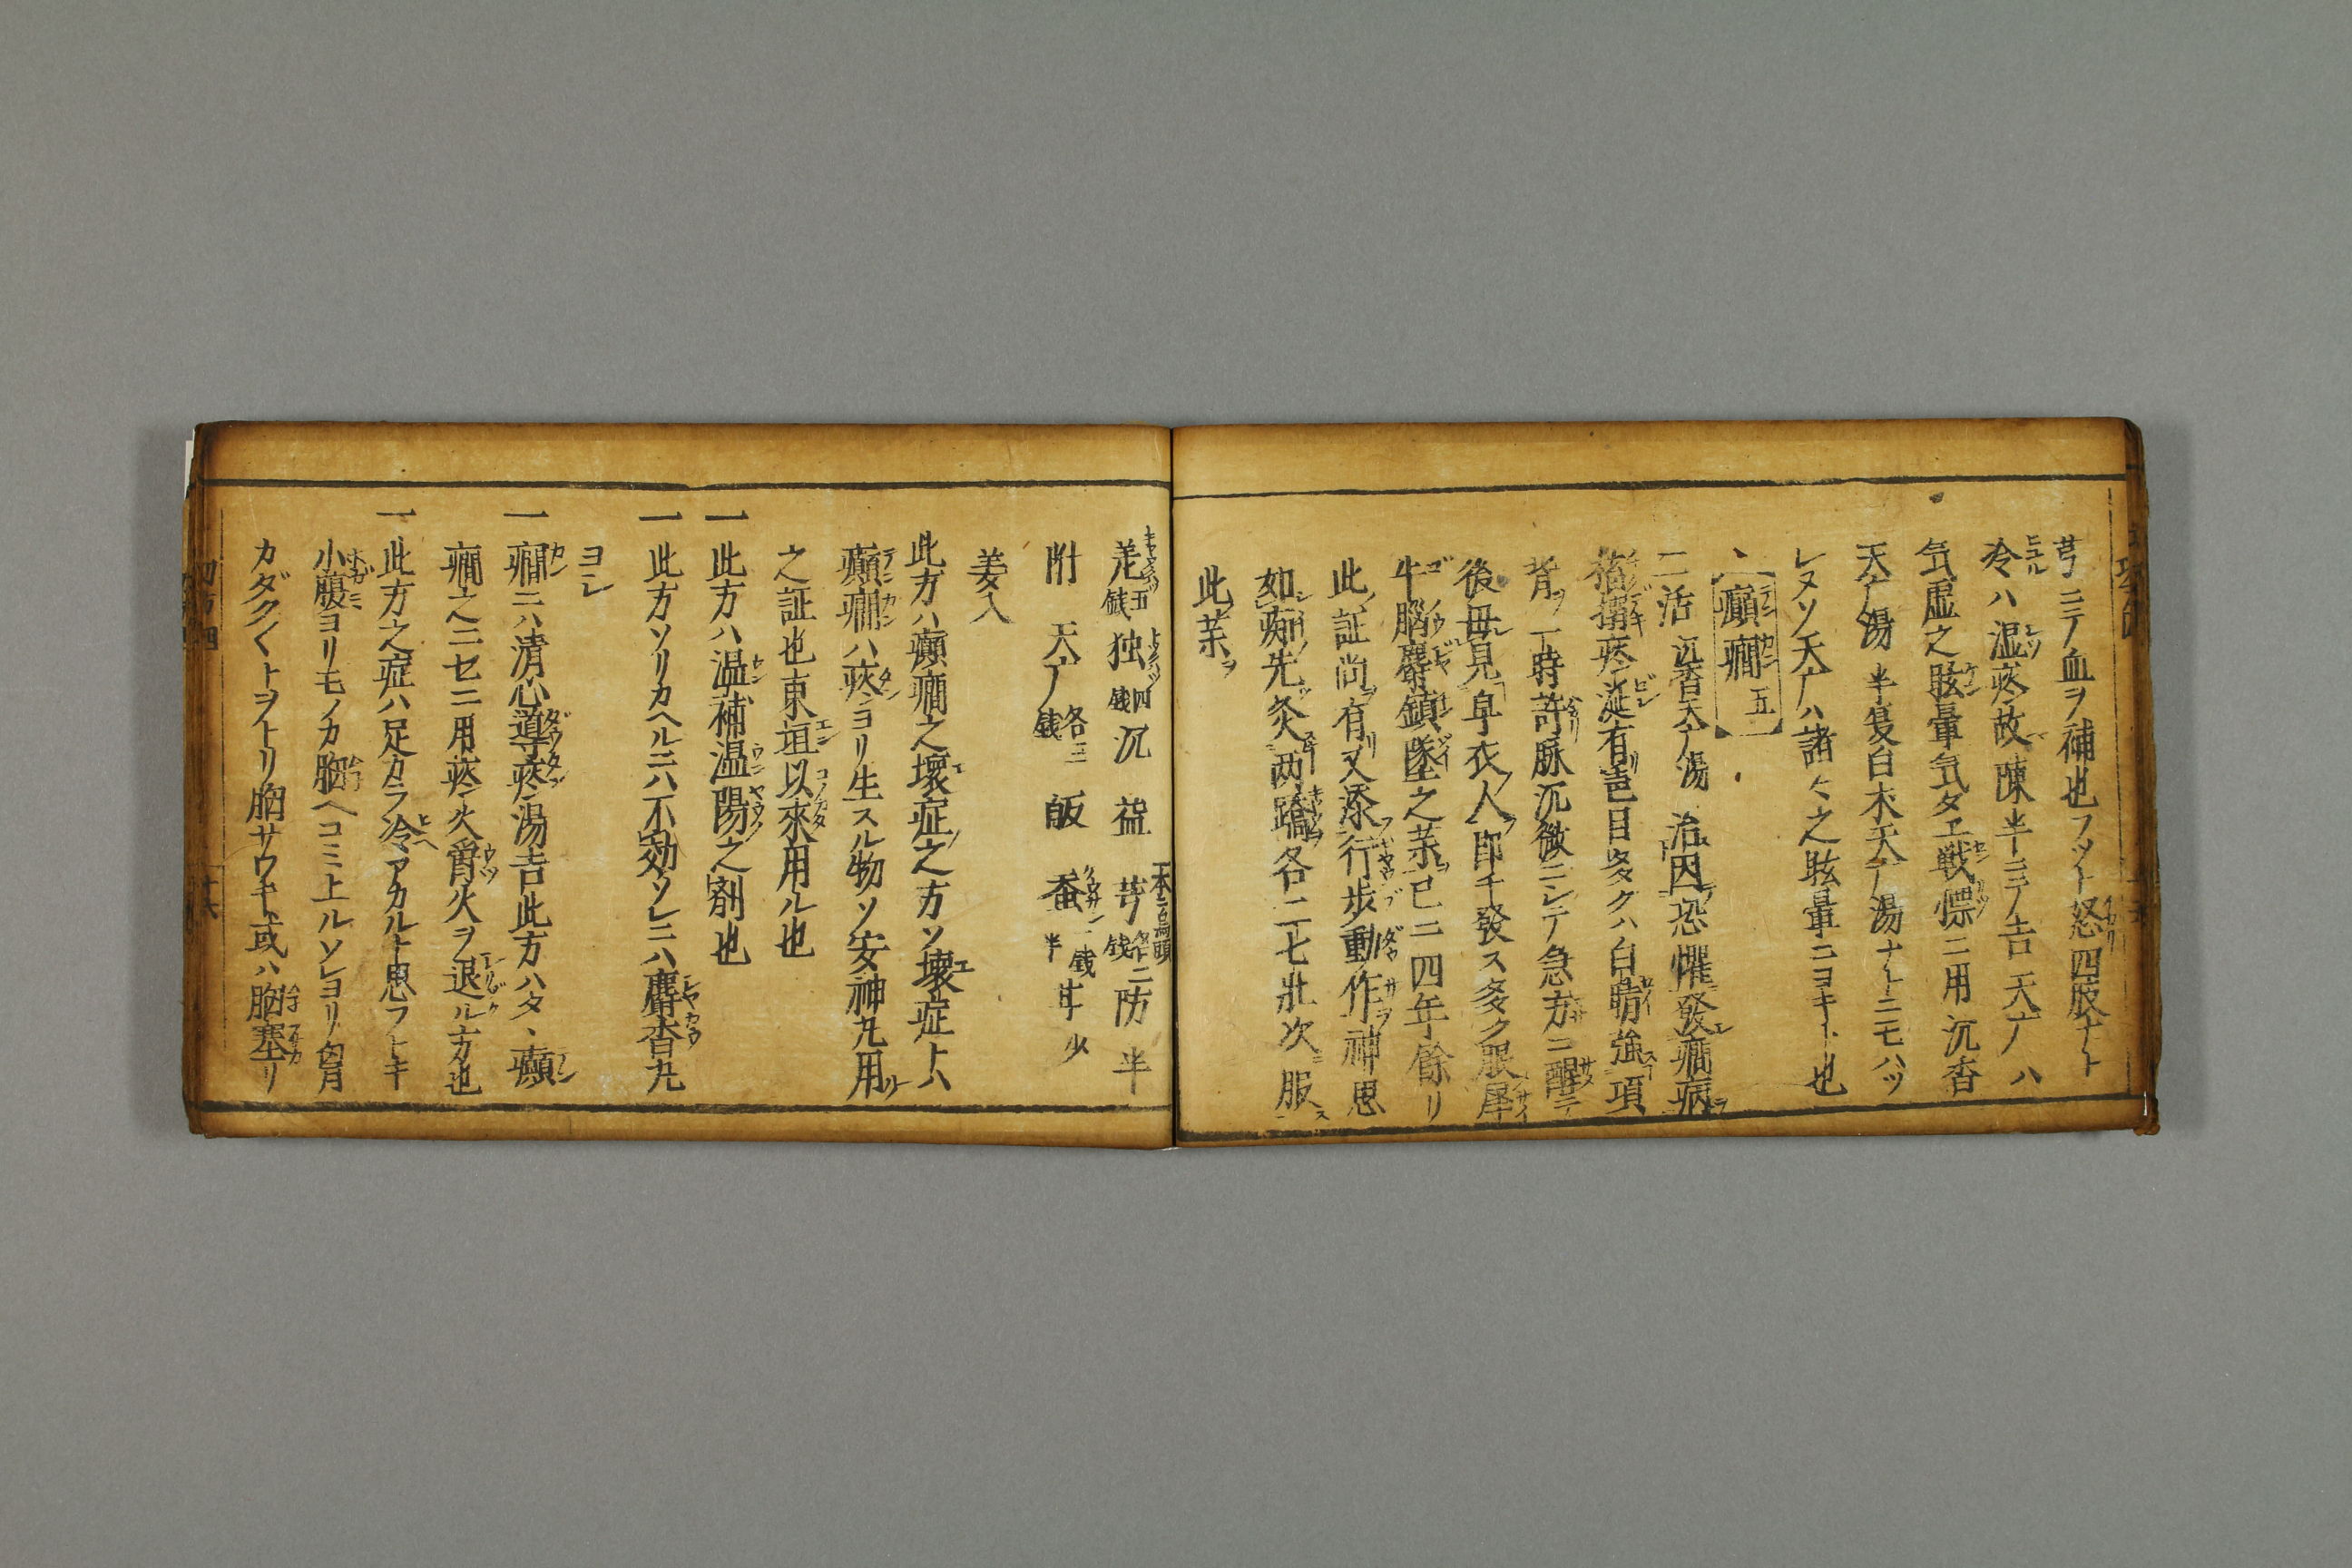 芎ニテ血ヲ補也フツト怒四肢ナト
冷ハ湿痰故陳半ニテ吉天广ハ
気虚之眩暈気タエ戦慄ニ用沉香
天广湯半夏白术天广湯ナトニモハツ
レヌソ天广ハ諸々之眩暈ニヨキト也
癲癇 五
二活 沉香天广湯 治因恐懼發癇病
搐搦痰涎有皀目多クハ白睛強項
背一時許脉沉微ニシテ急方ニ醒テ
後毋見皁衣人即チ發ス多ク服犀
牛脳麝鎮墜之薬已ニ四年餘リ
此証尚有又添行歩動作神思
如痴先灸两蹻各二七壯次服ス
此薬ヲ
羌五銭 独四銭 沉 益 芋本ニ烏頭 二銭 防 半
附 天广各三銭 皈 蚕一銭半 甘少
姜入
此方ハ癲癇之壊症之方ソ壊症トハ
癲癇ハ痰ヨリ生スル物ソ安神丸用ル
之証也東垣以來用ル也
一此方ハ温補温陽之剤也
一此方ソリカヘルニハ不効ソレニハ麝香丸
ヨシ
一癇ニハ清心導痰湯吉此方ハタヽ癲
癇之ニセニ用痰火胃火ヲ退ル方也
一此方之症ハ足カラ冷アカルト思フトキ
小腹ヨリモノカ胸ヘコミ上ルソレヨリ胷
カダク〱トヲトリ胸サワキ或ハ胸塞リ